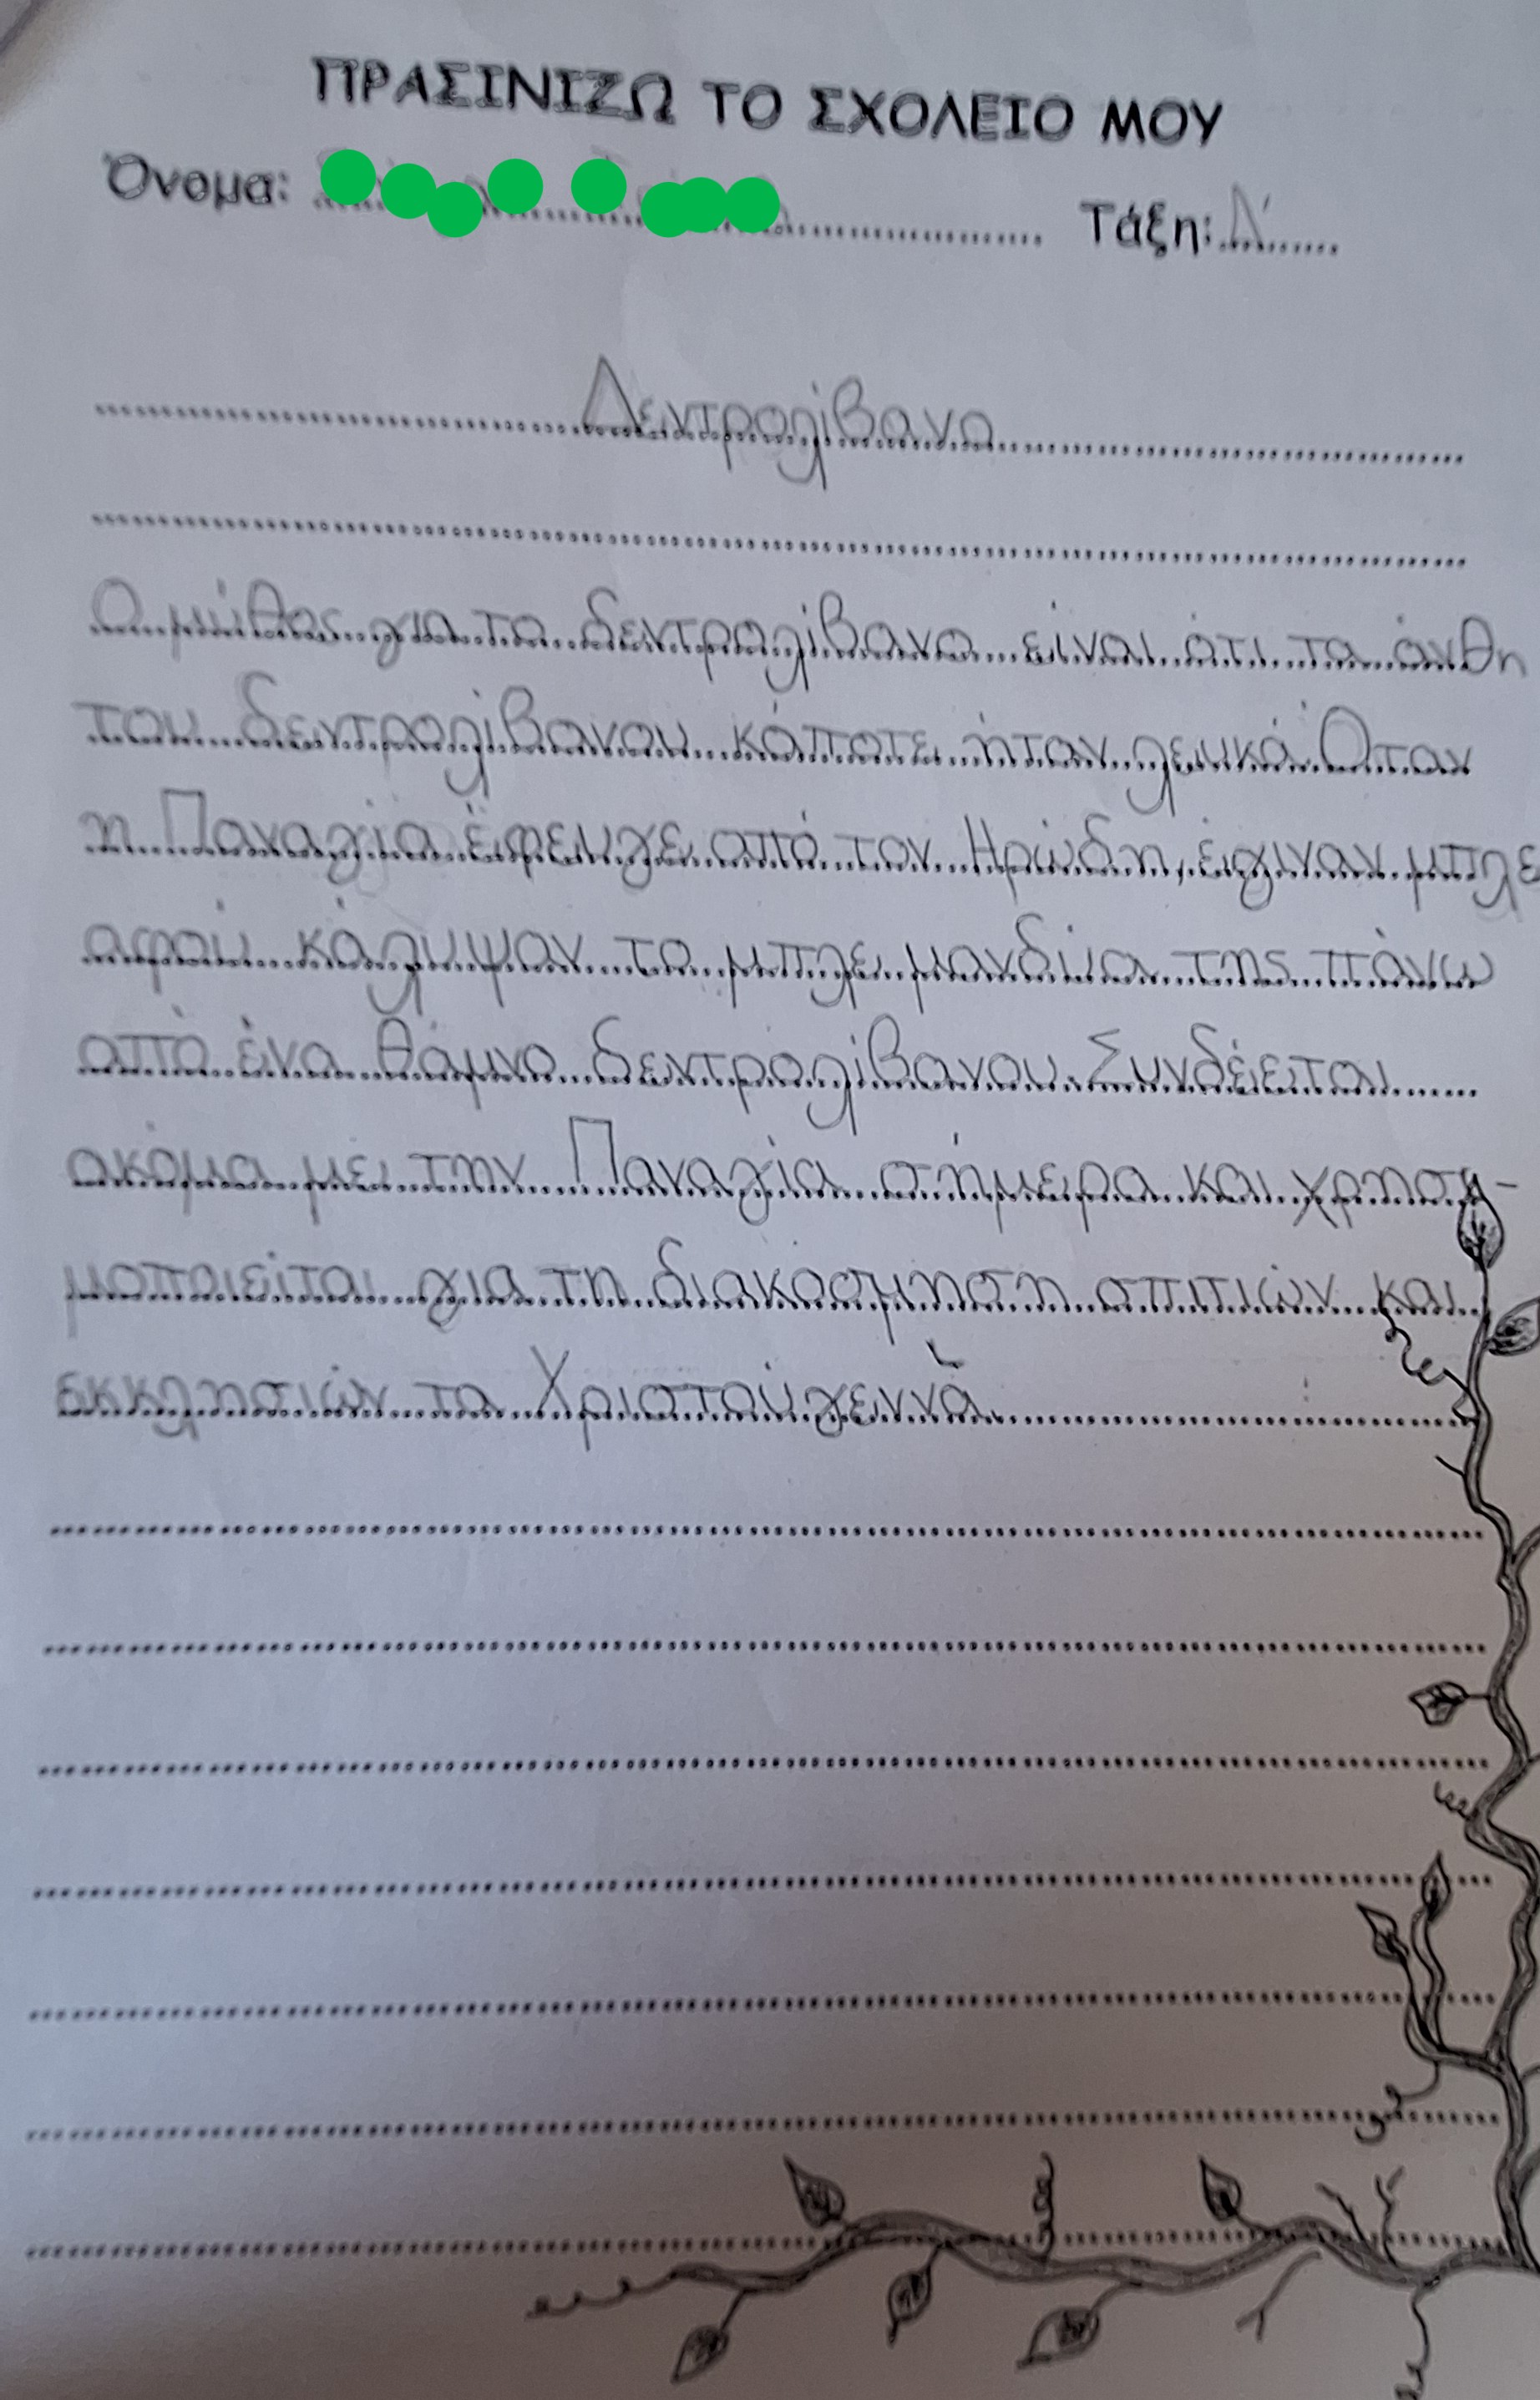 ΠΡΑΣΙΝΙΖΩ ΤΟ ΣΧΟΛΕΙΟ ΜΟΥ
Όνομα: Τάξη: Δ΄
Δεντρολίβανο
Ο μύθος για το δεντρολίβανο είναι ότι τα άνθη
του δεντρολίβανου κάποτε ήταν λευκά. Όταν
η Παναγία έφευγε από τον Ηρώδη, έγιναν μπλε
αφού κάλυψαν το μπλε μανδύα της πάνω
από ένα θάμνο δεντρολίβανου. Συνδέεται
ακόμα με την Παναγία σήμερα και χρησι-
μοποιείται για τη διακόσμηση σπιτιών και
εκκλησιών τα Χριστούγεννά.